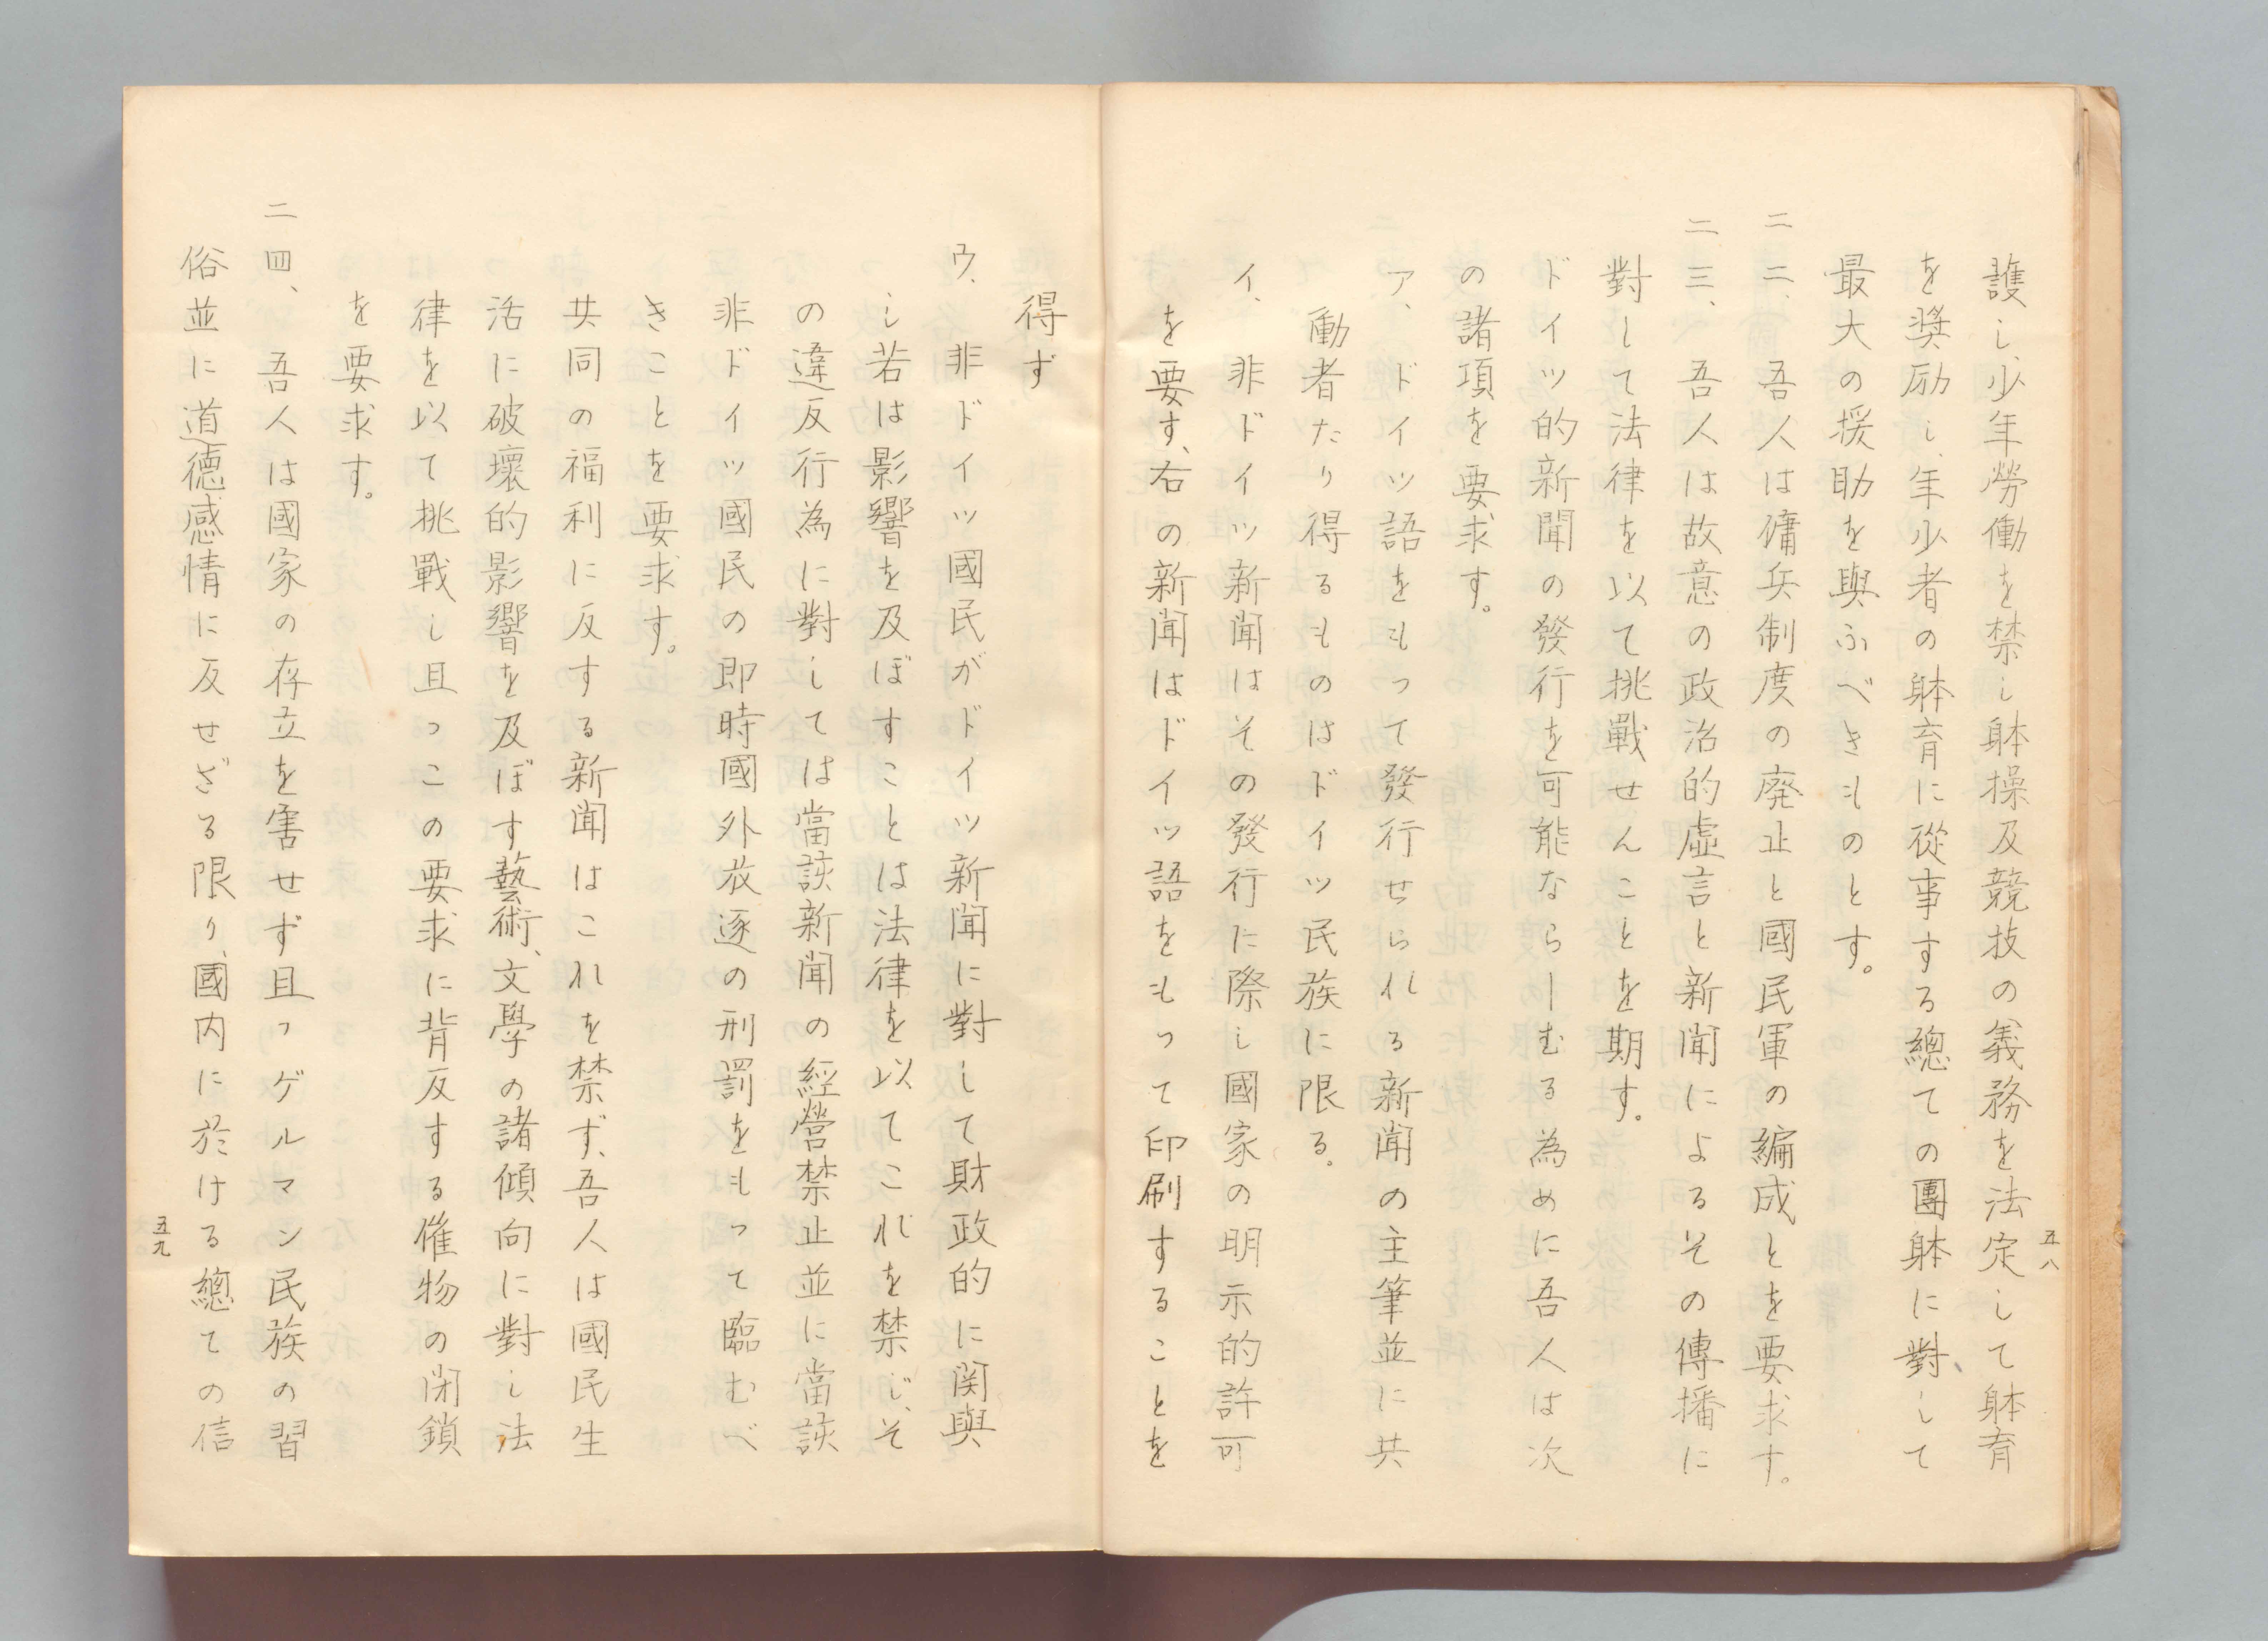 護し、少年勞働を禁し躰操及競技の義務を法定して躰育
を奨励し、年少者の躰育に從事する總ての團躰に對して
最大の援助を與ふべきものとす。
二二、吾人は傭兵制度の廃止と國民軍の編成とを要求す。
二三、吾人は故意の政治的虚言と新聞によるその傳播に
對して法律を以て挑戰せんことを期す。
ドイツ的新聞の發行を可能ならしむる為めに吾人は次
の諸項を要求す。
ア、ドイツ語をもって發行せられる新聞の主筆並に共
働者たり得るものはドイツ民族に限る。
イ、非ドイツ新聞はその發行に際し國家の明示的許可
を要す、右の新聞はドイツ語をもって印刷することを
五八
得ず
ウ、非ドイツ國民がドイツ新聞に對して財政的に関與
し若は影響を及ぼすことは法律を以てこれを禁じ、そ
の違反行為に對しては當該新聞の經營禁止並に當該
非ドイツ國民の即時國外放逐の刑罰をもって臨むべ
きことを要求す。
共同の福利に反する新聞はこれを禁ず、吾人は國民生
活に破壞的影響を及ぼす藝術、文學の諸傾向に對し法
律を以て挑戰し且つこの要求に背反する催物の閉鎖
を要求す。
二四、吾人は國家の存立を害せず且つゲルマン民族の習
俗並に道德感情に反せざる限り、國内に於ける總ての信
五九